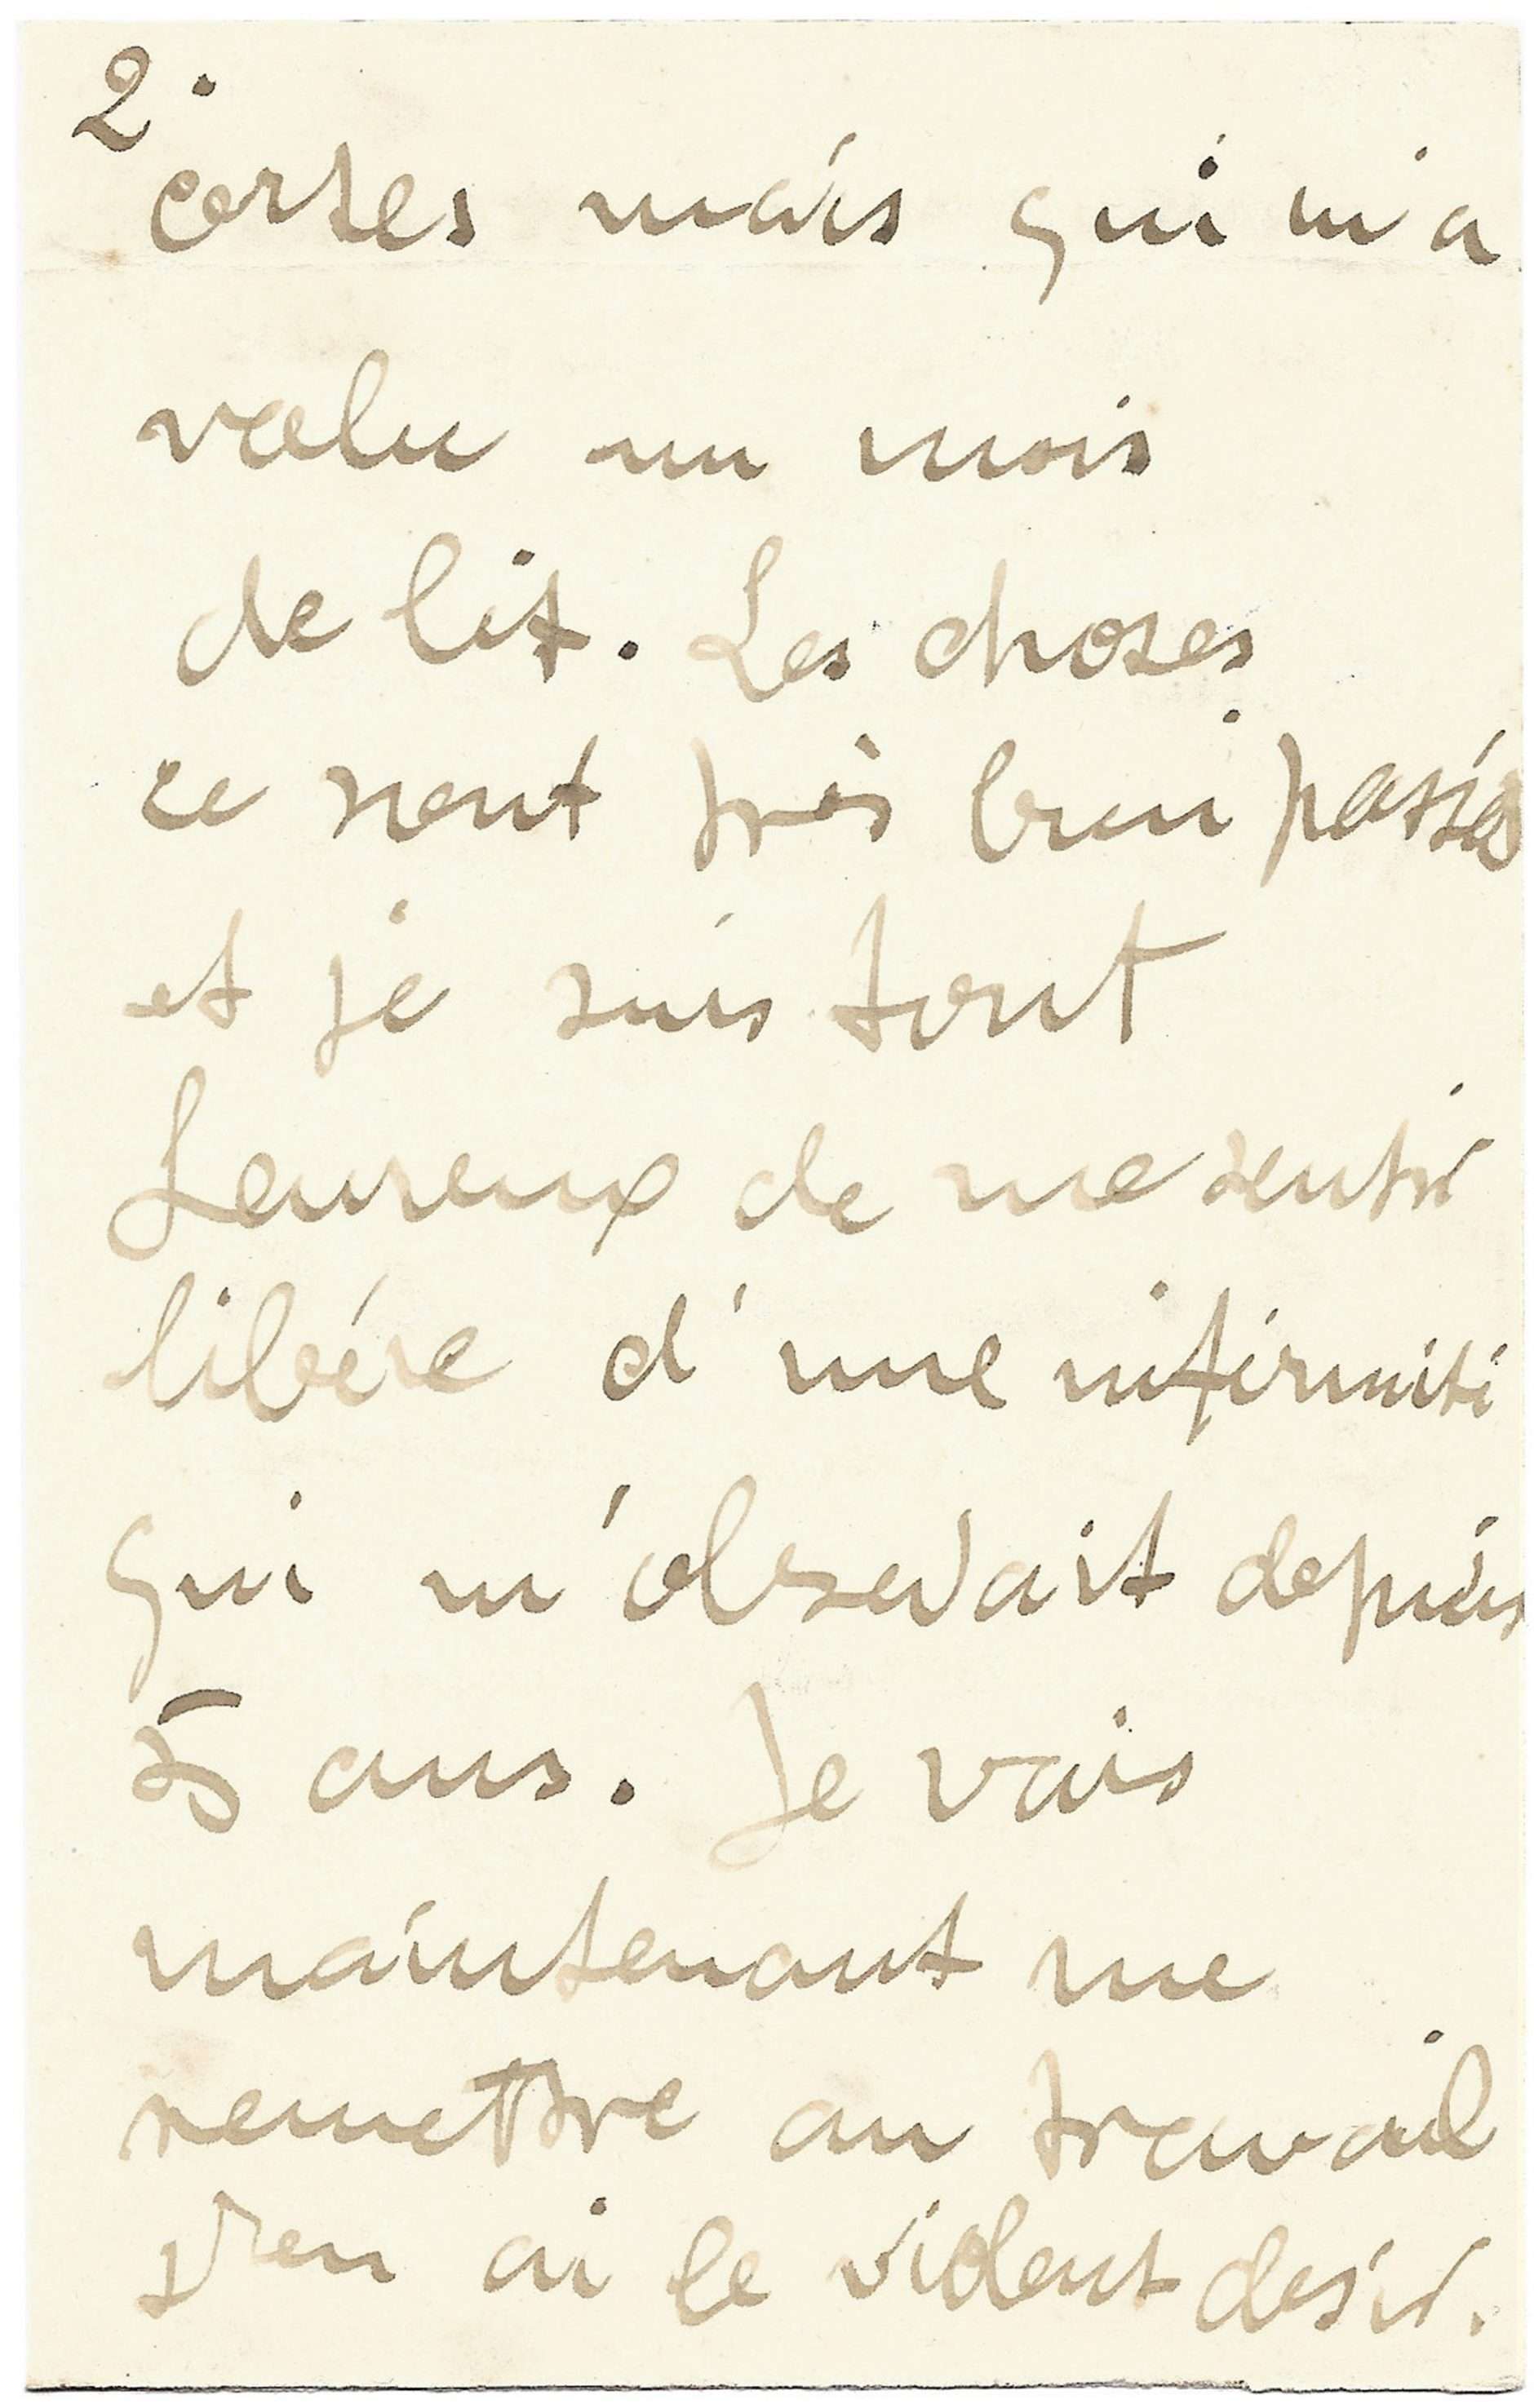 2.
certes mais qui m'a
valu un mois
de lit. Les choses
ce sont très bien passées
et je suis tout
heureux de me sentir
libére d'une infirmité
qui m'obsedait depuis
5 ans. Je vais
maintenant me
remettre au travail
J'en ai le violent desir.